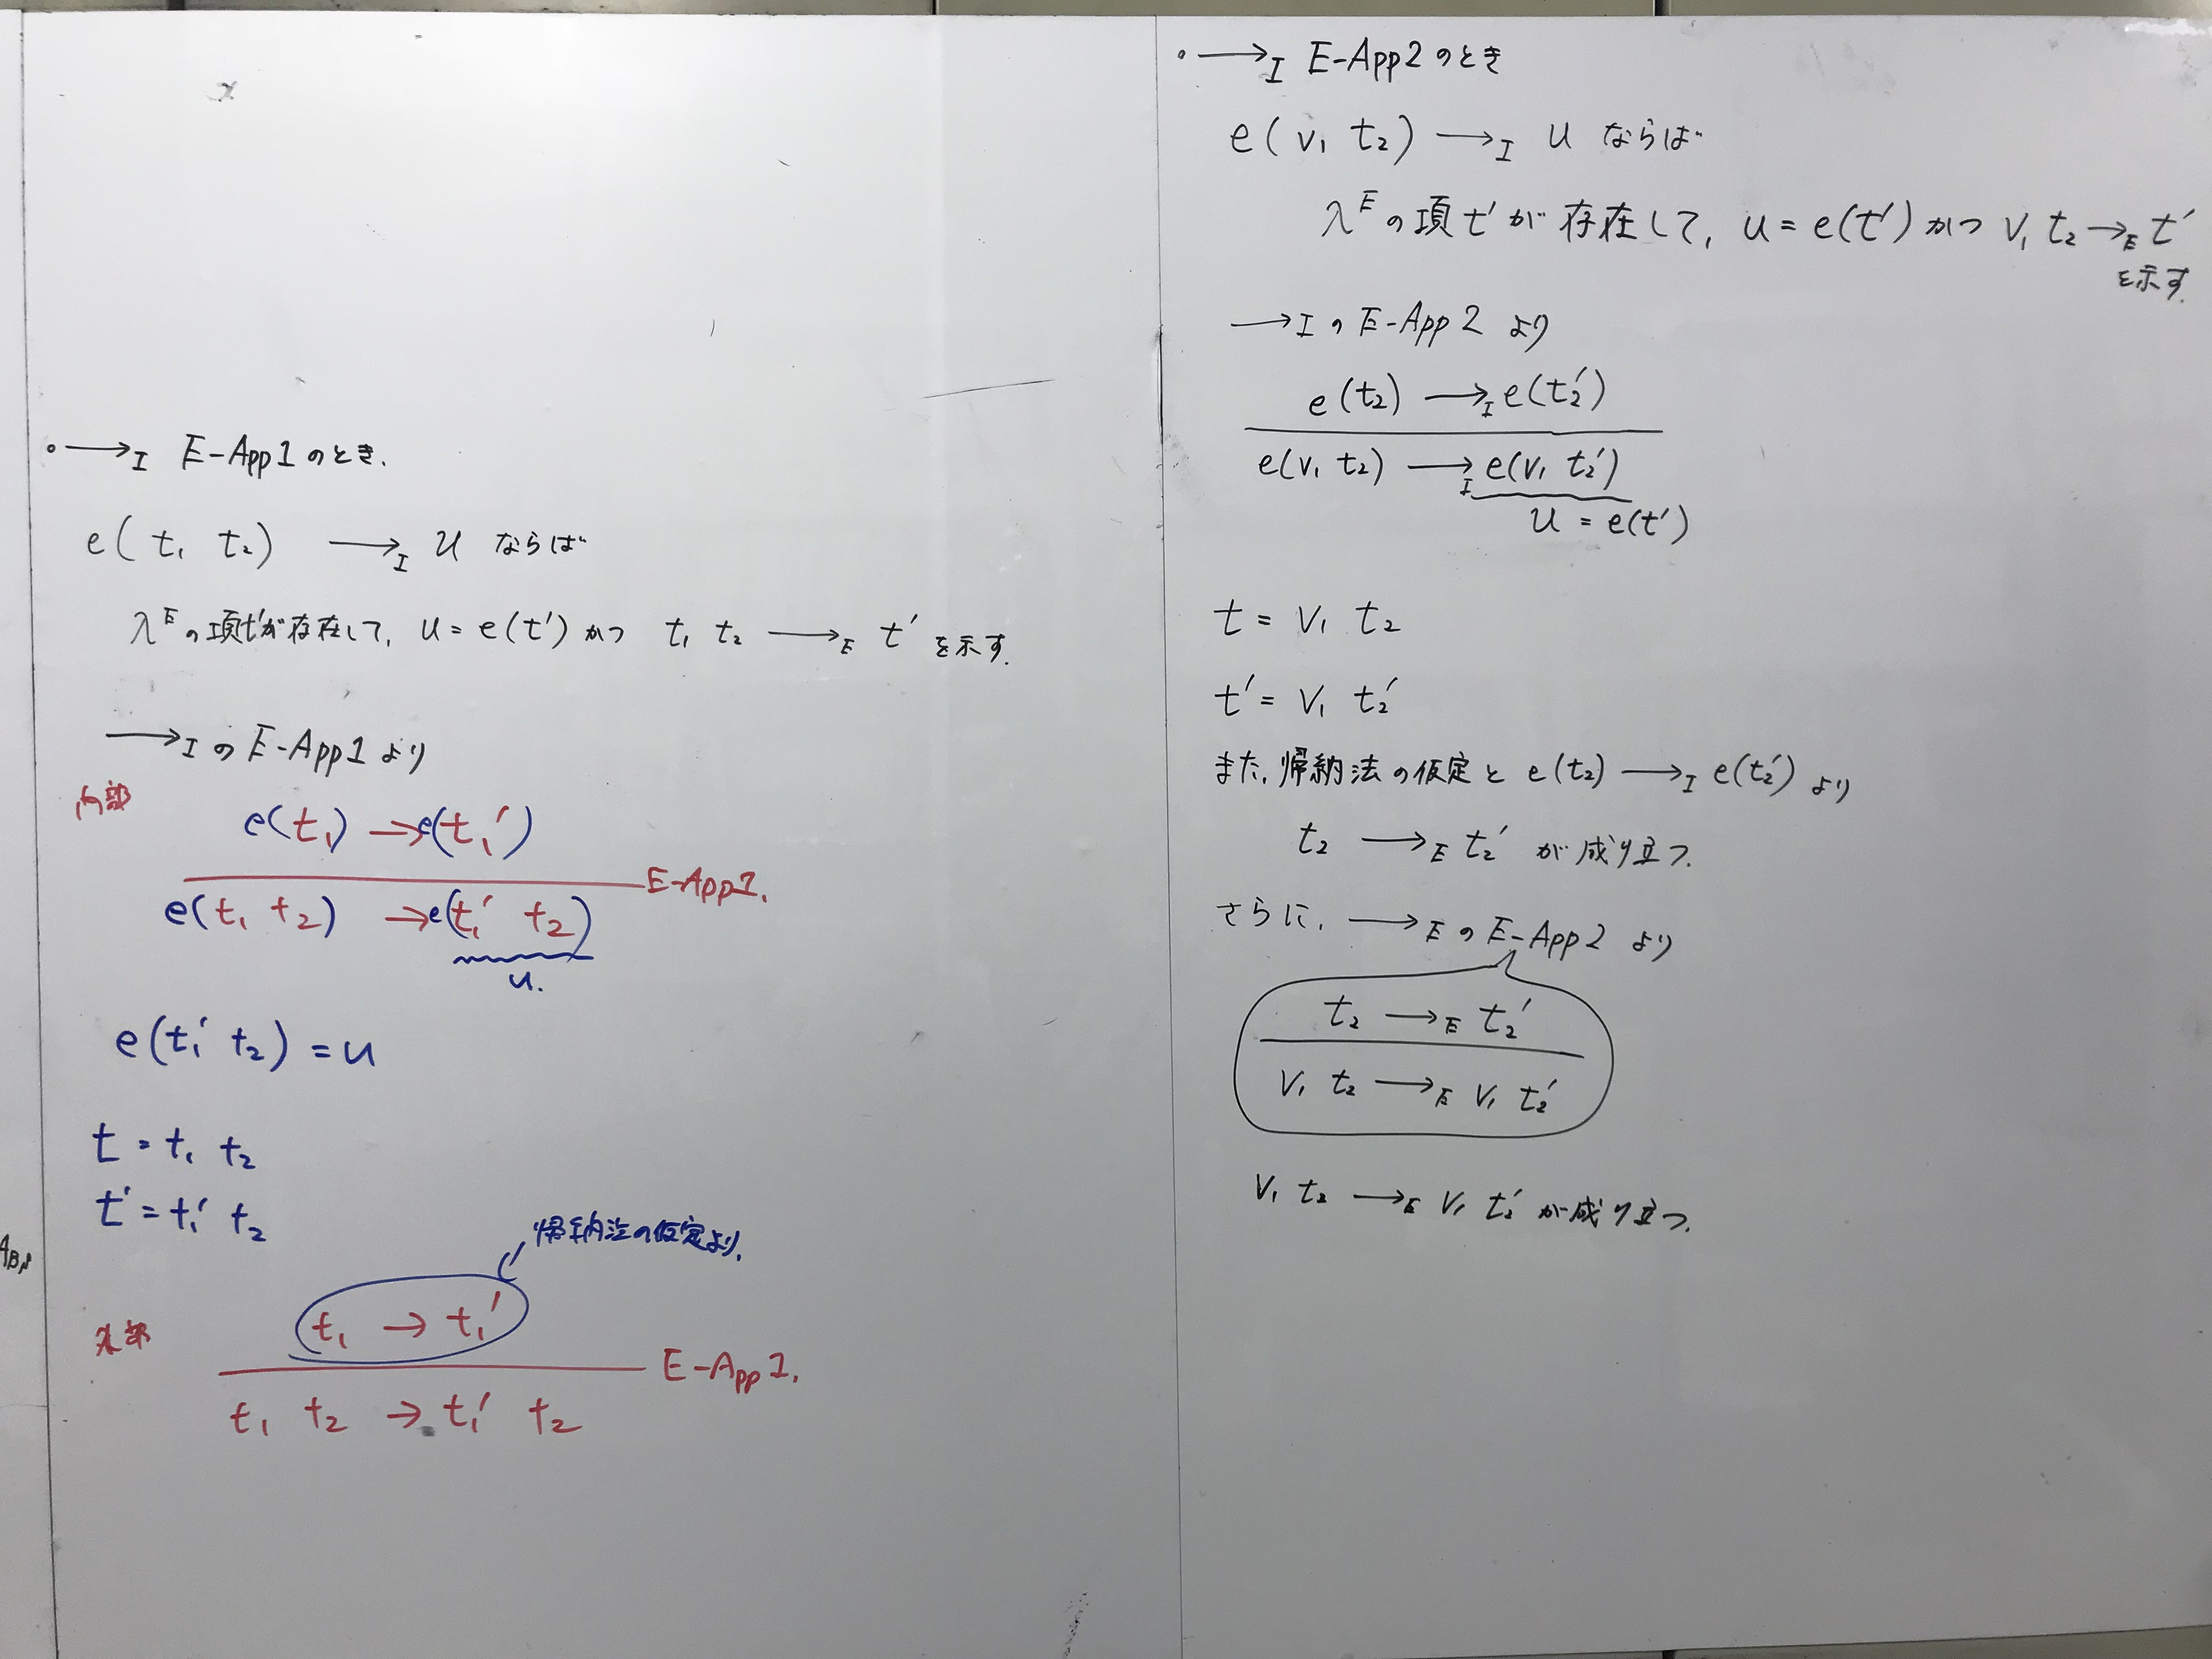 ◦ ⟶I E-App1のとき.
e( t1 t2) ⟶I u ならば
λEの項t'が存在して, u = e(t') かつ t1 t2 ⟶E t' を示す.
⟶I の E-App1 より
内部
e(t1) → e(t1')
E-App1.
e(t1 t2) → e(t1' t2)
u.
e(t1' t2) = u
t = t1 t2
t' = t1' t2
帰納法の仮定より.
外部
t1 → t1'
E-App1.
t1 t2 → t1' t2
◦ ⟶I E-App2のとき
e( v1 t2) ⟶I u ならば
λEの項 t'が存在して, u = e(t') かつ v1 t2 →E t'
を示す.
⟶I の E-App2 より
e(t2) ⟶I e(t2')
e(v1 t2) ⟶I e(v1 t2')
u = e(t')
t = v1 t2
t' = v1 t2'
また, 帰納法の仮定と e(t2) ⟶I e(t2') より
t2 ⟶E t2' が成り立つ.
さらに, ⟶E の E-App2 より
t2 ⟶E t2'
v1 t2 ⟶E v1 t2'
v1 t2 ⟶E v1 t2' が成り立つ.